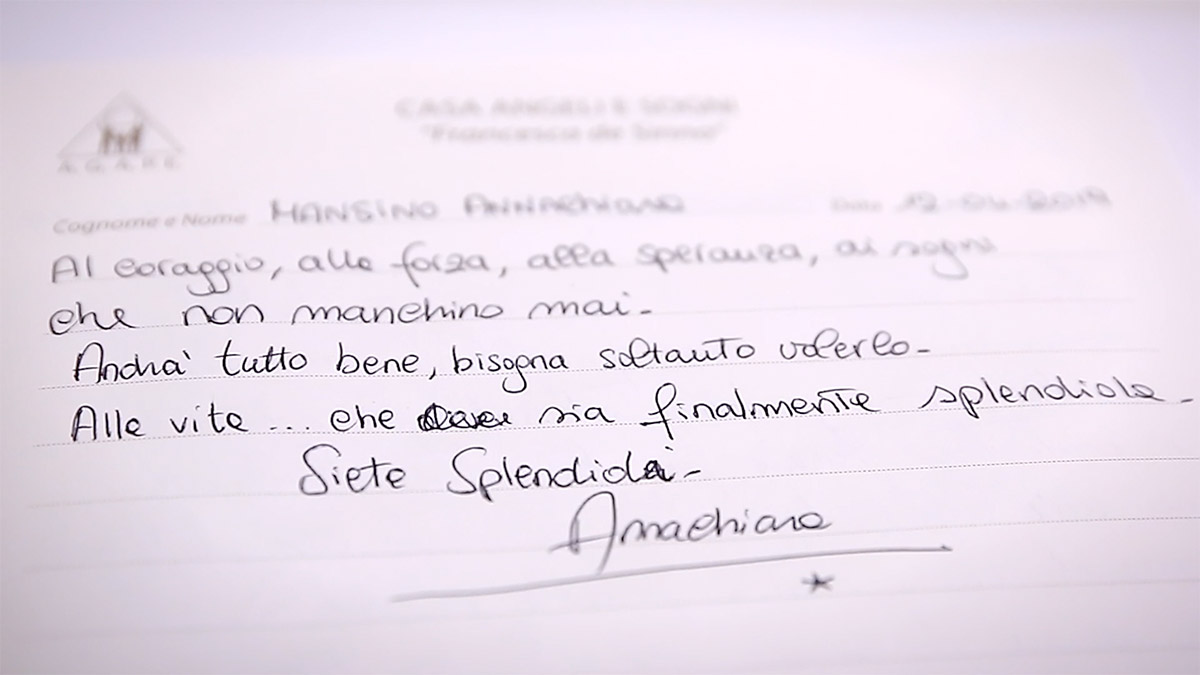 A.G.A.P.E.
CASA ANGELI E SOGNI
"Francesca de Sinno"
Cognome e Nome MANSINO ANNACHIARA Data 12-04-2019
Al coraggio, alla forza, alla speranza, ai sogni
che non manchino mai.
Andrà tutto bene, bisogna soltanto volerlo.
Alla vita ... che sia finalmente splendida.
Siete Splendidi.
Annachiara